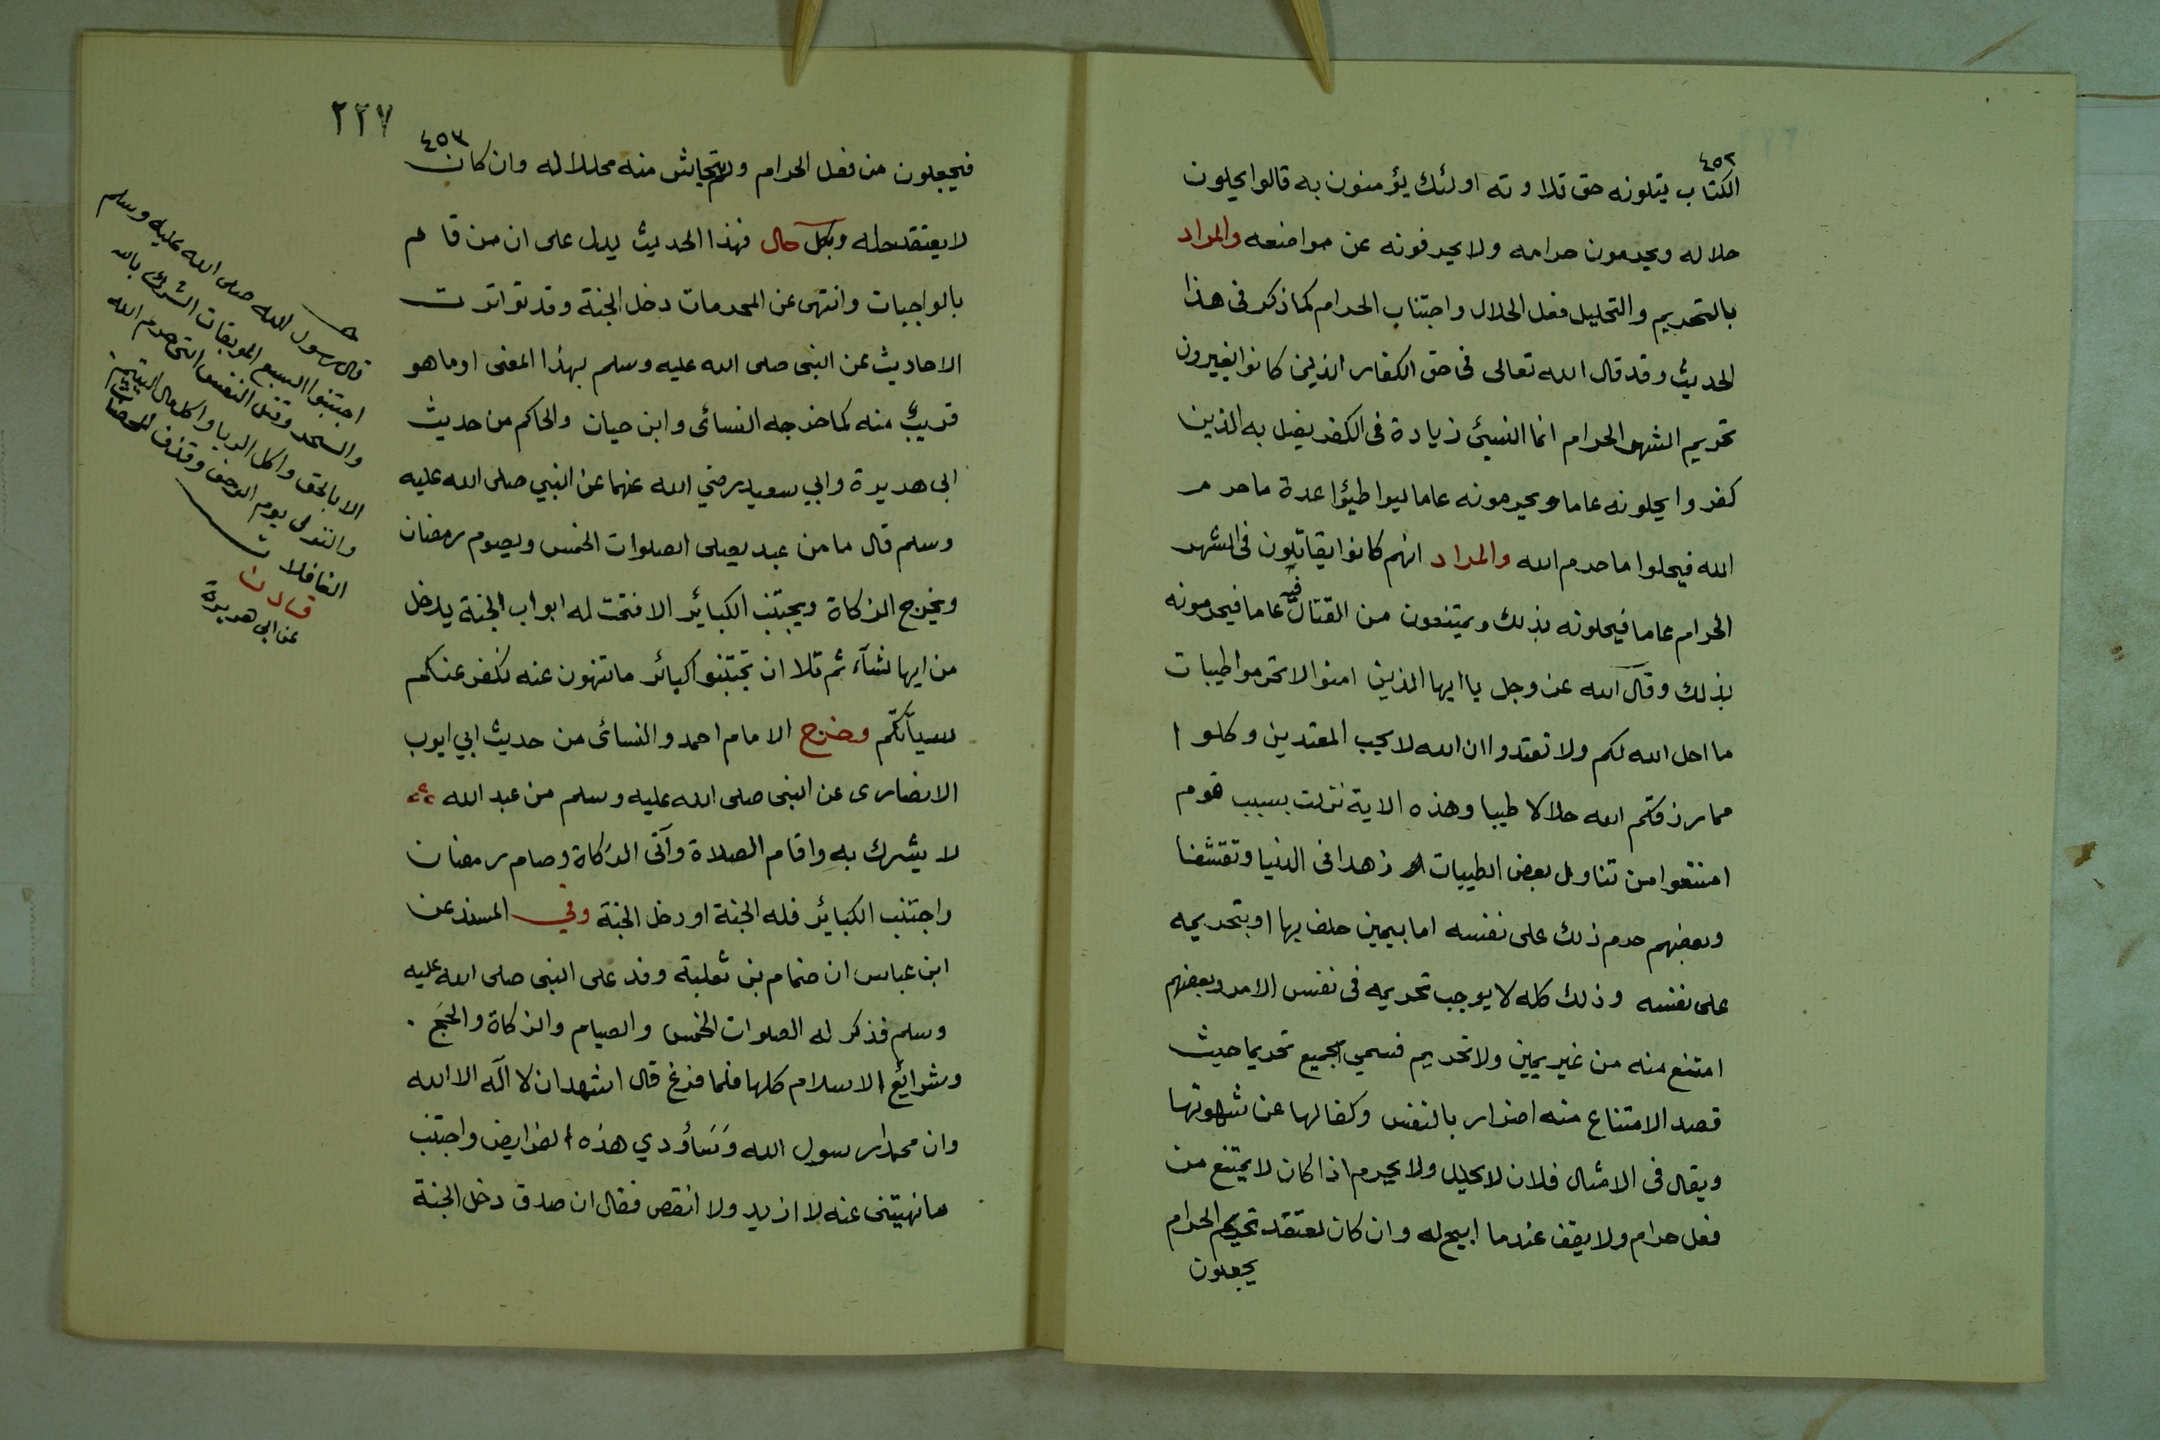 ٤٥٢
الكتاب يتلونه حق تلاوته اولئك يؤمنون به قالوا يحلون
حلاله ويحرمون حرامه ولا يحرفونه عن مواضعه والمراد
بالتحريم والتحليل فعل الحلال واجتناب الحرام كما ذكر فى هذا
الحديث وقد قال الله تعالى فى حق الكفار الذين كانوا يغيرون
تحريم الشهر الحرام انما النسيئ زيادة فى الكفر يضل به الذين
كفروا يحلونه عاما ويحرمونه عاما ليواطيؤا عدة ما حرم
الله فيحلوا ما حرم الله والمراد انهم كانوا يقاتلون فى الشهر
الحرام عاما فيحلونه بذلك ويمتنعون من القتال فيه عاما فيحرمونه
بذلك وقال الله عز وجل يا ايها الذين امنوا لا تحرموا طيبات
ما احل الله لكم ولا تعتدوا ان الله لا يحب المعتدين وكلوا
مما رزقكم الله حلالا طيبا وهذه الاية نزلت بسبب قوم
امتنعوا من تناول بعض الطيبات زهدا فى الدنيا وتقشفا
وبعضهم حرم ذلك على نفسه اما بيمين حلف بها او بتحريمه
على نفسه وذلك كله لا يوجب تحريمه فى نفس الامر وبعضهم
امتنع منه من غير يمين ولا تحريم فسمي الجميع تحريما حيث
قصد الامتناع منه اضرار بالنفس وكفا لها عن شهوتها
ويقال فى الامثال فلان لا يحلل ولا يحرم اذا كان لا يمتنع من
فعل حرام ولا يقف عندما ابيح له وان كان يعتقد تحريم الحرام
يجعلون
٢٢٧
٤٥٣
فيجعلون من فعل الحرام ولا يتحاش منه محللا له وان كان
لا يعتقد حله وبكل حال فهذا الحديث يدل على ان من قام
بالواجبات وانتهى عن المحرمات دخل الجنة وقد تواترت
الاحاديث عن النبى صلى الله عليه وسلم بهذا المعنى او ما هو
قريب منه كما خرجه النسائى وابن حيان والحاكم من حديث
ابى هريرة وابي سعيد رضي الله عنهما عن النبي صلى الله عليه
وسلم قال ما من عبد يصلى الصلوات الخمس ويصوم رمضان
ويخرج الزكاة ويجتنب الكبائر الا فتحت له ابواب الجنة يدخل
من ايها شآء ثم تلا ان تجتنبوا كبائر ما تنهون عنه نكفر عنكم
سيآتكم وخرج الامام احمد والنسائى من حديث ابي ايوب
الانصارى عن النبى صلى الله عليه وسلم من عبد الله
لا يشرك به واقام الصلاة وآتى الزكاة وصام رمضان
واجتنب الكبائر فله الجنة او دخل الجنة وفي المسند عن
ابن عباس ان ضمام بن ثعلبة وفد على النبى صلى الله عليه
وسلم فذكر له الصلوات الخمس والصيام والزكاة والحج
وشرايع الاسلام كلها فلما فرغ قال اشهد ان لا آله الا الله
وان محمدا رسول الله وسأودي هذه الفرايض واجتنب
ما نهيتنى عنه لا ازيد ولا انقص فقال ان صدق دخل الجنة
قال رسول الله صلى الله عليه وسلم
اجتنبوا السبع الموبقات الشرك بالله
والسحر وقتل النفس التى حرم الله
الا بالحق واكل الربا واكل مال اليتيم
والتولى يوم الزحف وقذف المحصنات
الغافلات
عن ابى هريرة